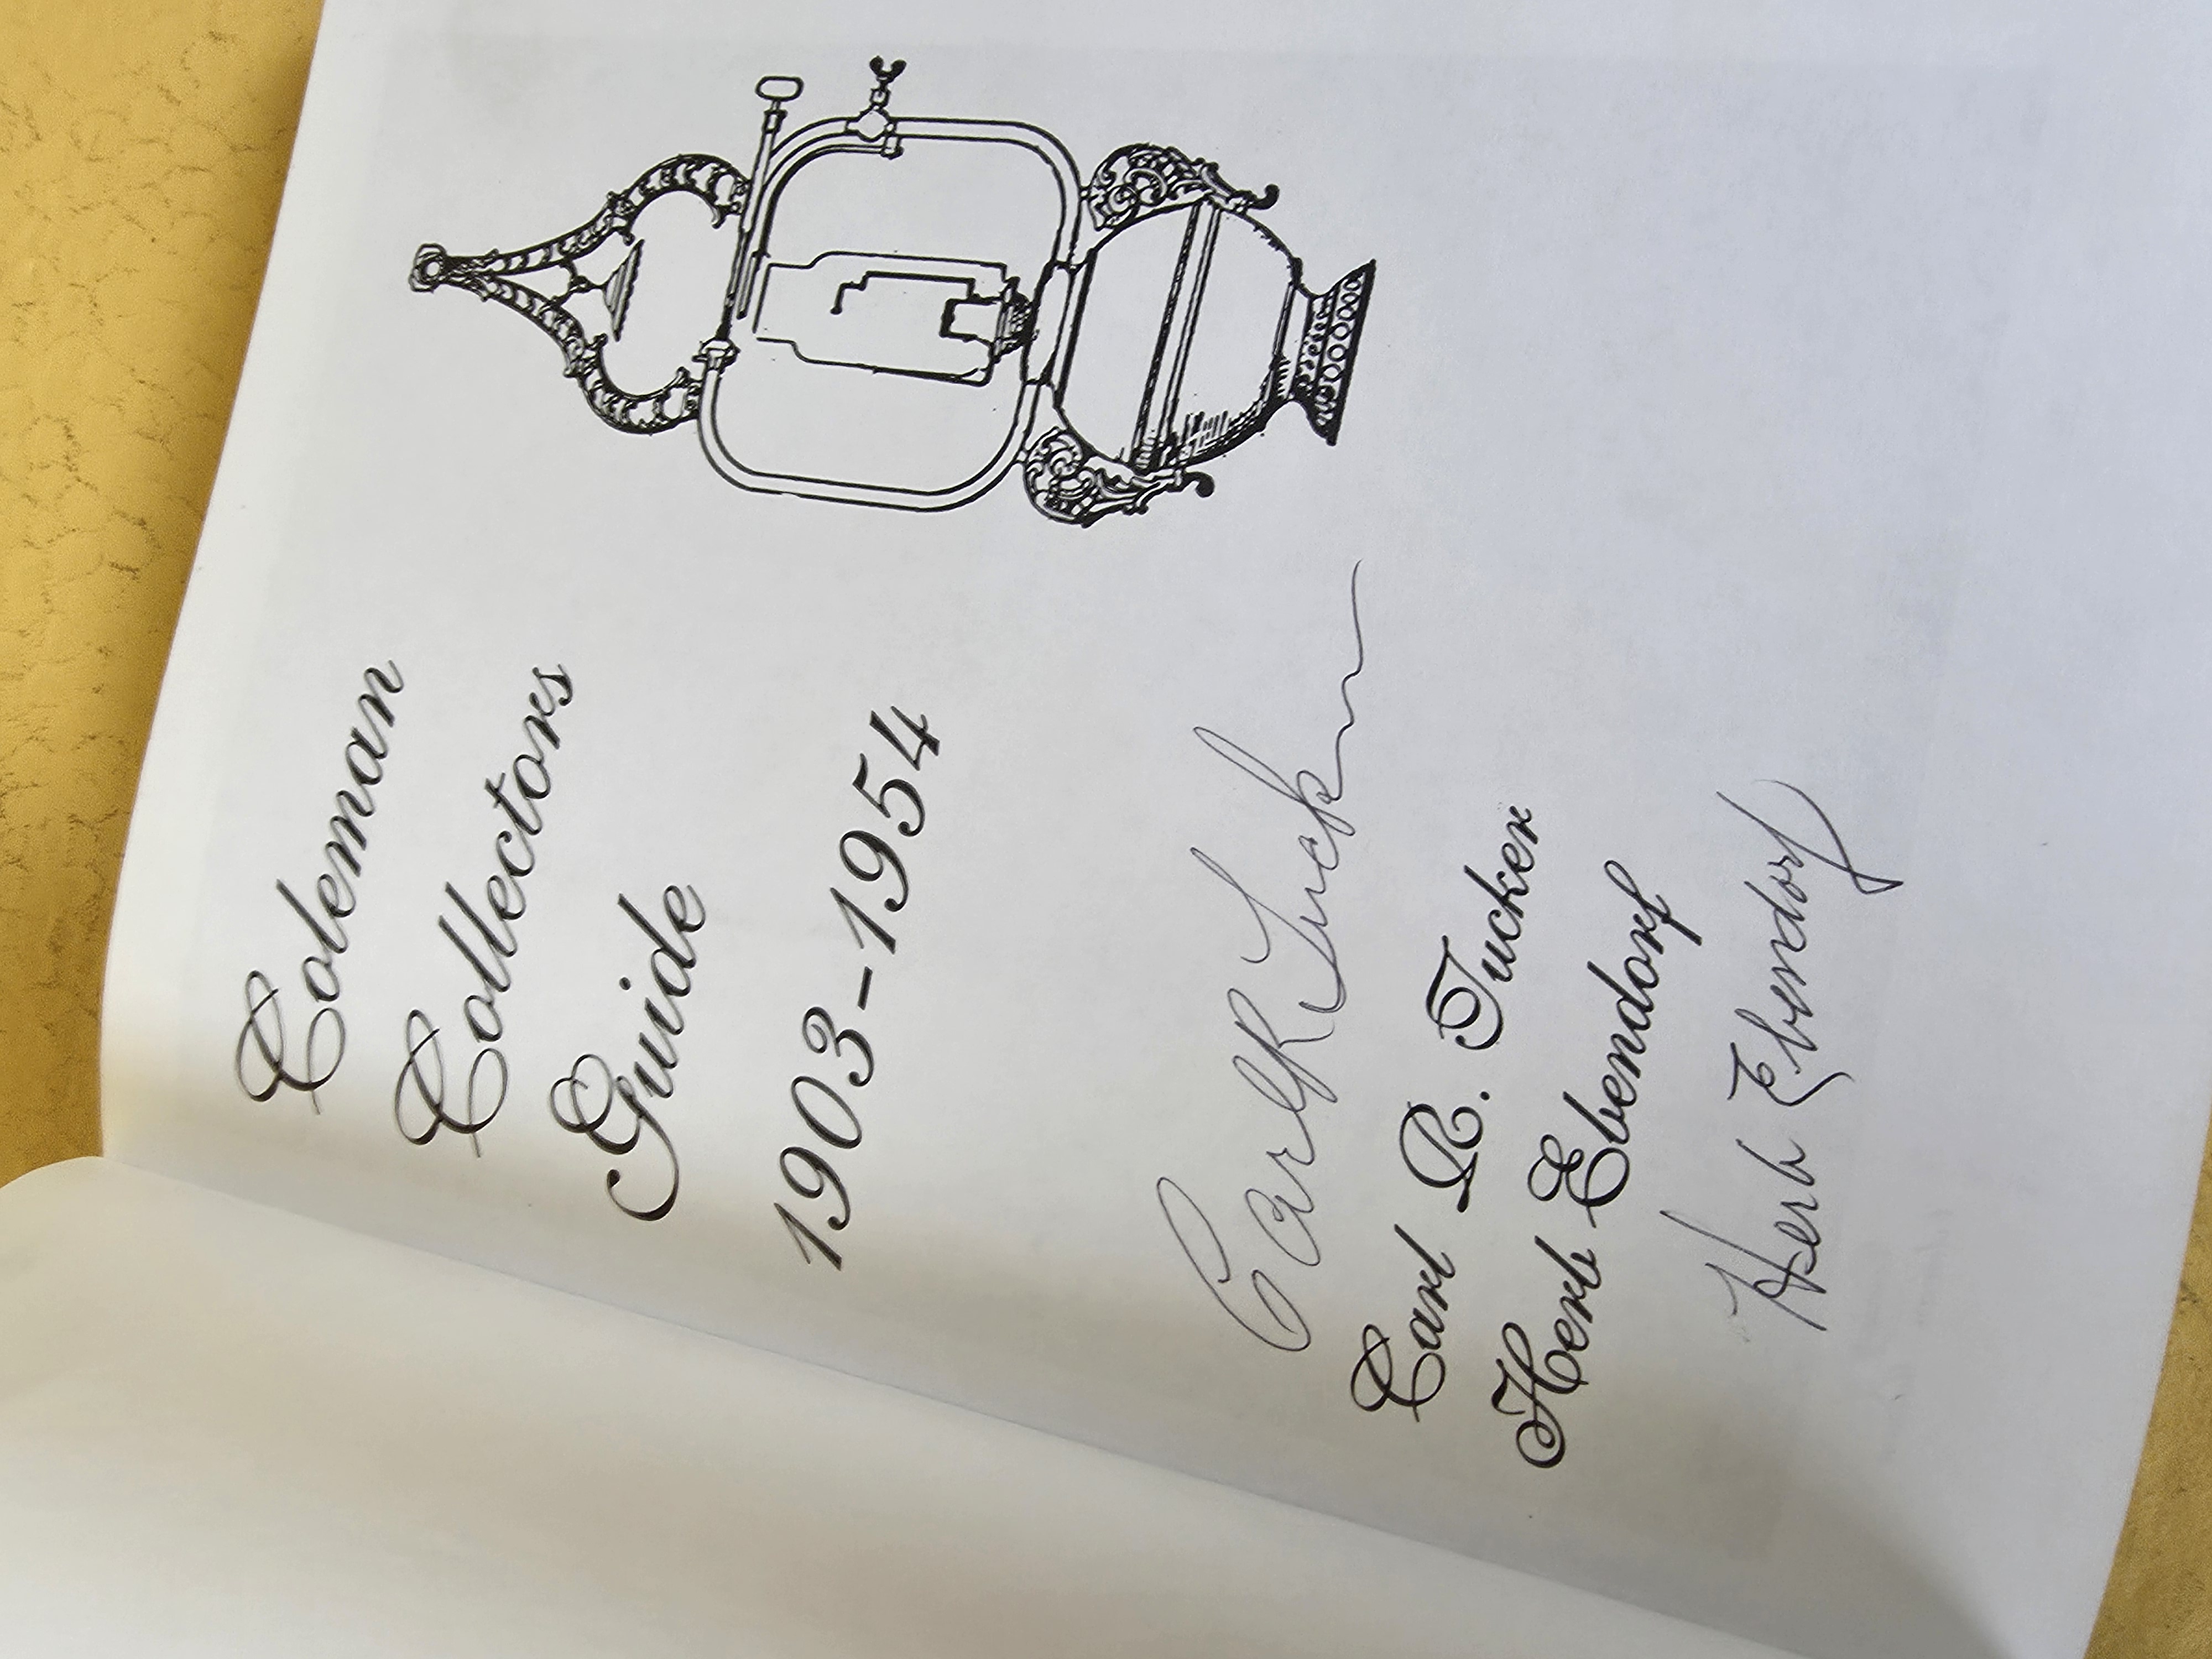 Coleman
Collectors
Guide
1903-1954
Carl R Tucker
Carl R. Tucker
Herb Ebendorf
Herb Ebendorf